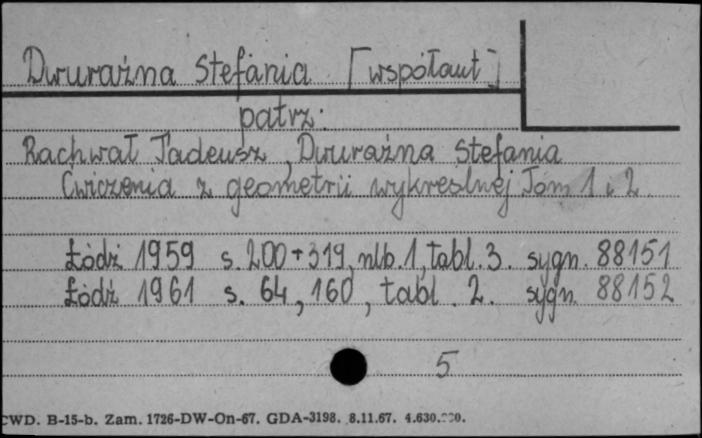 Dwuraźna Stefania [współaut]
patrz:
Rachwał Tadeusz, Dwuraźna Stefania
Ćwiczenia z geometrii wykreślnej Tom 1 i 2.
Łódź 1959 s. 200+319, nlb. 1, tabl. 3. sygn. 88151
Łódź 1961 s. 64, 160, tabl. 2. sygn. 88152
5
CWD. B-15-b. Zam. 1726-DW-On-67. GDA-3198. 8.11.67.